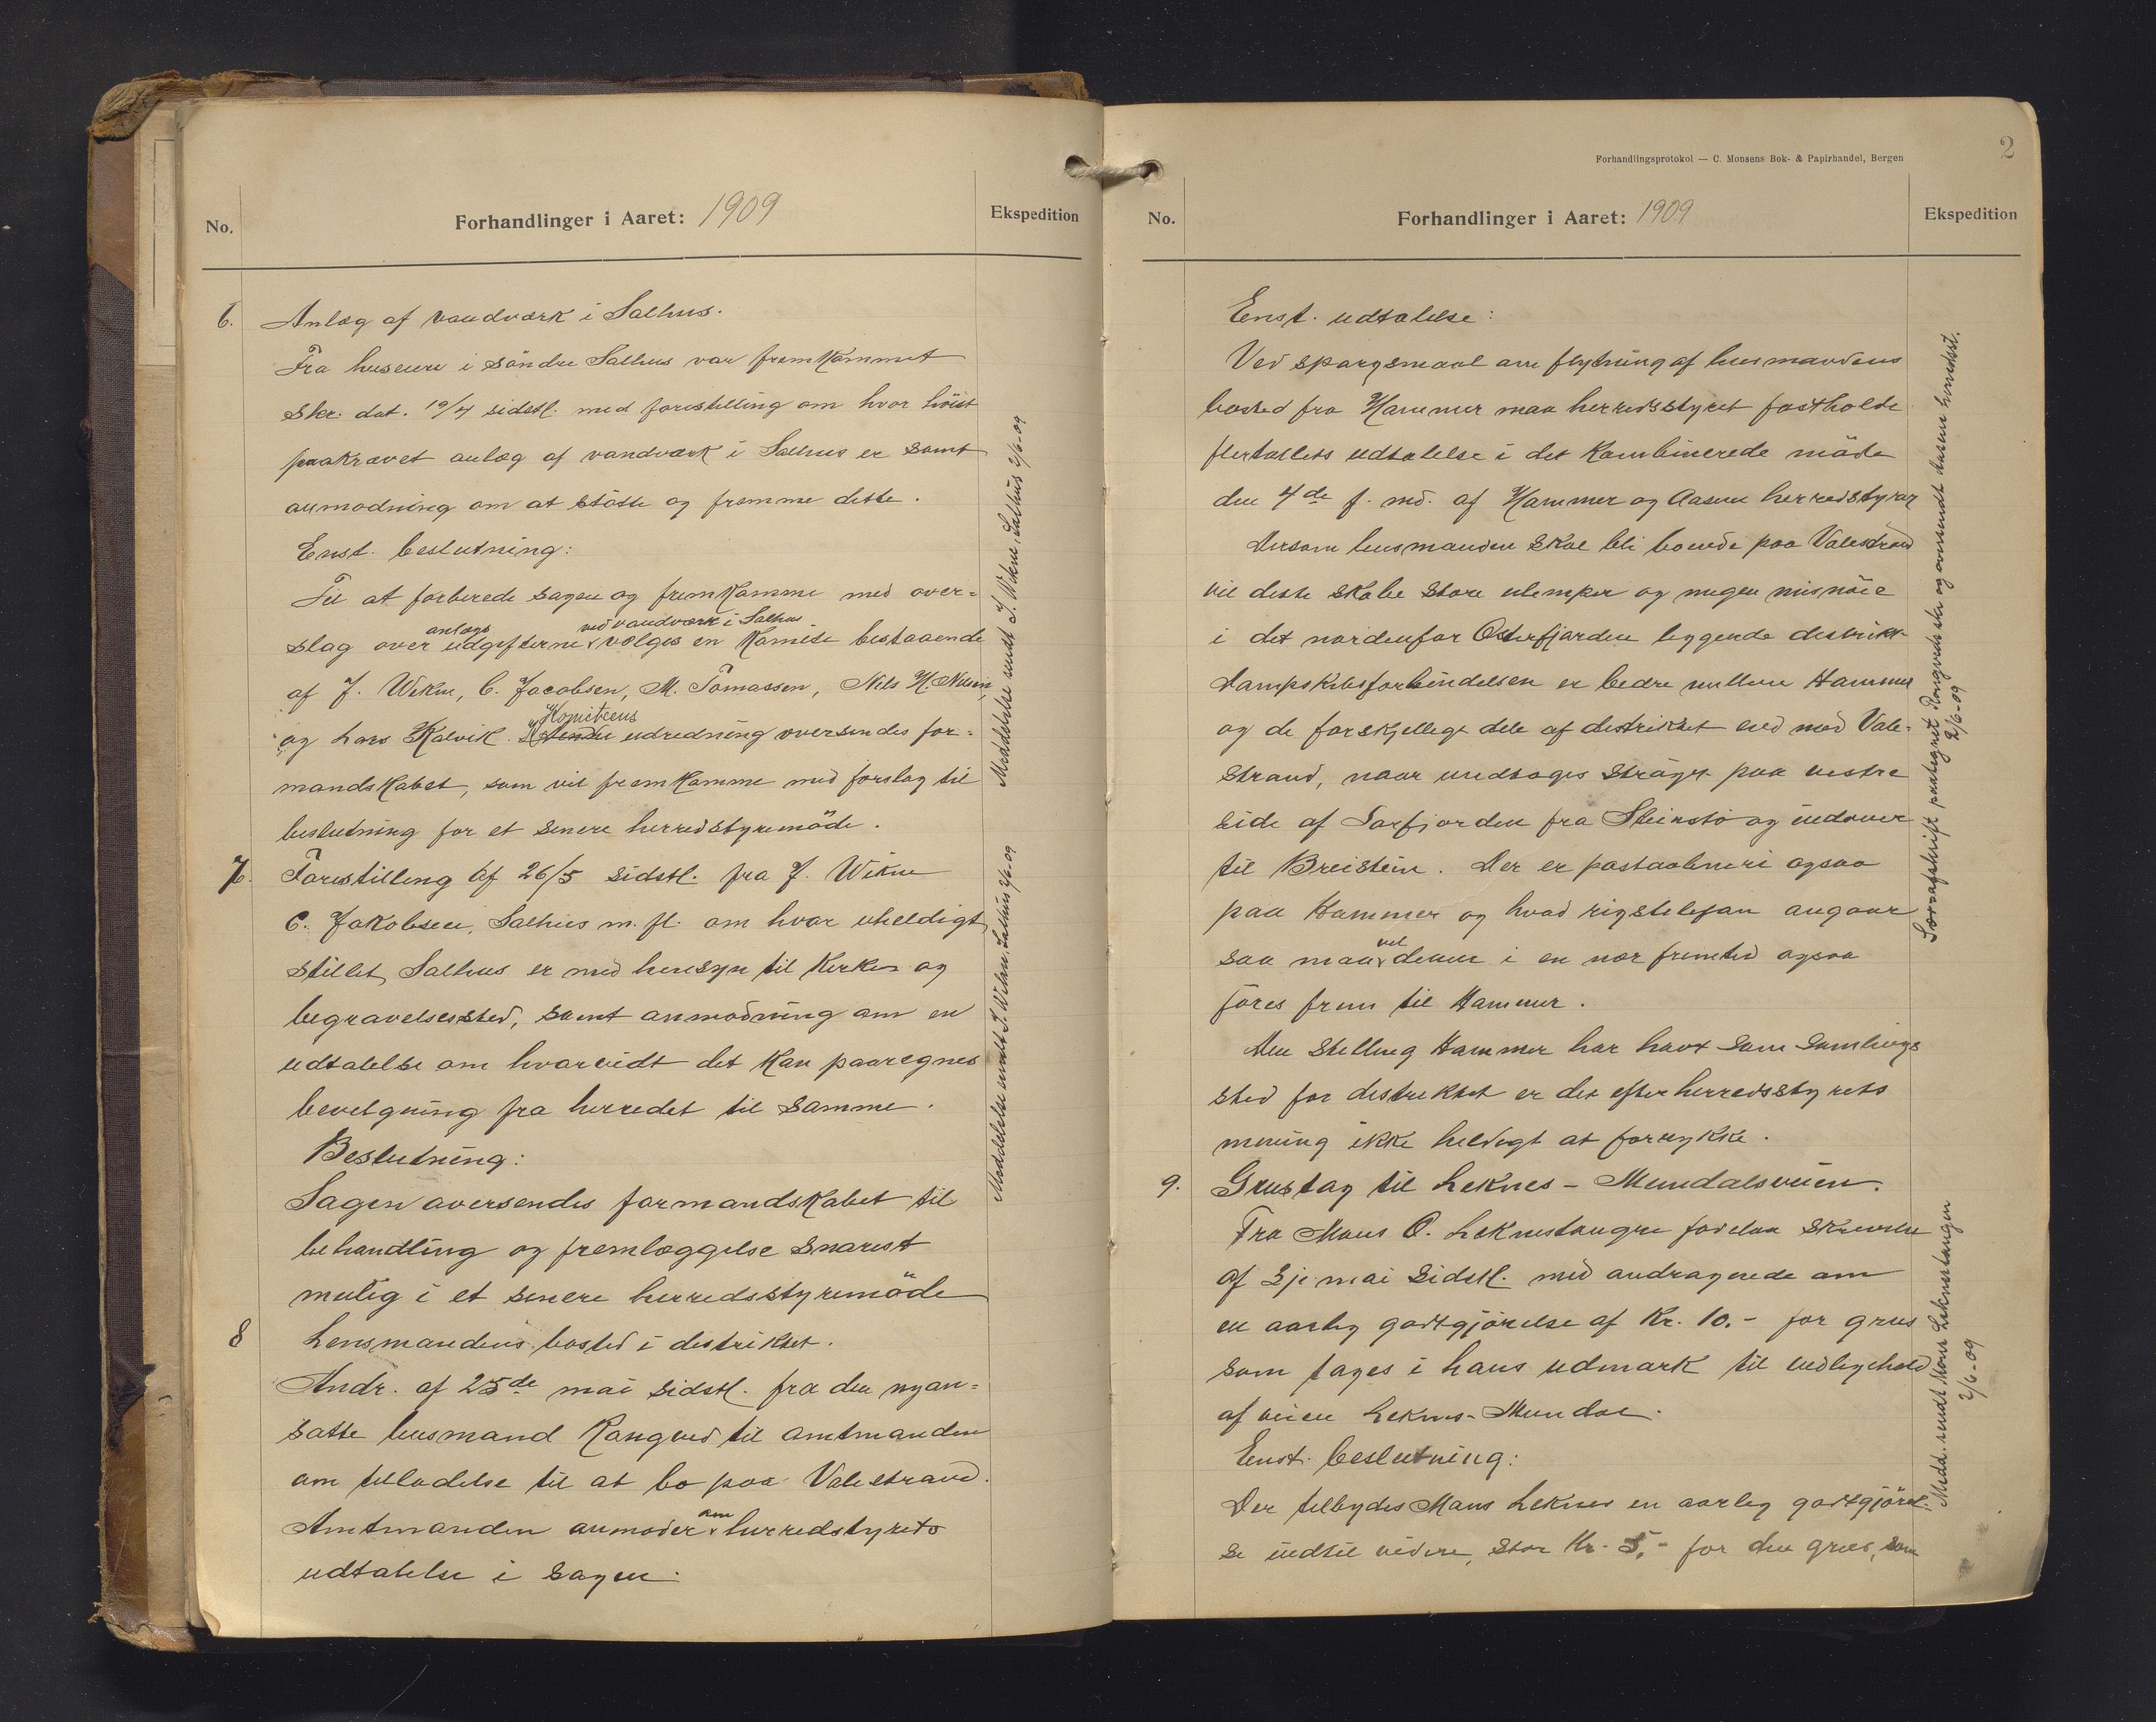 No.
Forhandlinger i Aaret: 1909
Ekspedition
6.
Anlæg af vandværk i Salhus.
Fra huseiere i søndre Salhus var fremkommet
skr. dat. 19/4 sidstl. med forestilling om hvor høist
paakrævet anlæg af vandværk i Salhus er samt
anmodning om at støtte og fremme dette.
Enst. beslutning:
Til at forberede sagen og fremkomme med over=
anlægs
ved vandværk i Salhus
slag over udgifterne vælges en komite bestaaende
af J. Wikne, C. Jacobsen, M. Tomassen, Nils H.
Komiteens
og Lars Kalvik. udredning oversendes for=
mandskabet, som vil fremkomme med forslag til
beslutning for et senere herredstyremöde.
Meddelelse sendt J. Wikne, Salhus 2/6-09
7.
Forestilling af 26/5 sidstl. fra J. Wikne
C. Jakobsen, Salhus m. fl. om hvor uheldigt
stillet Salhus er med hensyn til kirke og
begravelsessted, samt anmodning om en
udtalelse om hvorvidt det kan paaregnes
bevilgning fra herredet til samme.
Beslutning:
Sagen oversendes formandskabet til
behandling og fremlæggelse snarest
mulig i et senere herredsstyremöde
Meddelelse sendt J. Wikne, Salhus 2/6-09
8
Lensmandens bosted i distriktet.
Andr. af 25de mai sidstl. fra den nyan=
satte lensmand Rongved til amtmanden
om tilladelse til at bo paa Valestrand.
om
Amtmanden anmoder herredstyrets
udtalelse i sagen.
Forhandlingsprotokol — C. Monsens Bok- & Papirhandel, Bergen
2
No.
Forhandlinger i Aaret: 1909
Ekspedition
Enst. udtalelse:
Ved spørgsmaal om flytning af lensmandens
bosted fra Hammer maa herredsstyret fastholde
flertallets udtalelse i det kombinerede möde
den 4de f. md. af Hammer og Aasene herredstyrer
Dersom lensmanden skal bli boende paa Valestrand
vil dette skabe store ulemper og megen misnöie
i det nordenfor Osterfjorden liggende distrikt.
Dampskibsforbindelsen er bedre mellem Hammer
og de forskjellige dele af distriktet end med Vale=
strand, naar undtages strøget paa vestre
side af Sørfjorden fra Steinstö og indover
til Breistein. Der er postaabneri ogsaa
paa Hammer og hvad rigstelefon angaar
vel
saa maa denne i en nær fremtid ogsaa
föres frem til Hammer.
Den stilling Hammer har havt som samlings
sted for distriktet er det efter herredsstyrets
mening ikke heldigt at forrykke.
Særafskrift paategnet Rongveds skr. og oversendt Aasene herredsst.
2/6-09
9.
Grustag til Leknes - Mundalsveien.
Fra Mons O. Leknestangen forelaa skrivelse
af 3je mai sidstl. med andragende om
en aarlig godtgjörelse af Kr. 10.- for grus
som tages i hans udmark til vedligehold
af veien Leknes - Mundal.
Enst. beslutning:
Der tilbydes Mons Leknes en aarlig godtgjörel=
se indtil videre, stor Kr. 5.- for den grus, som
Medd. sendt Mons Leknestangen
2/6-09